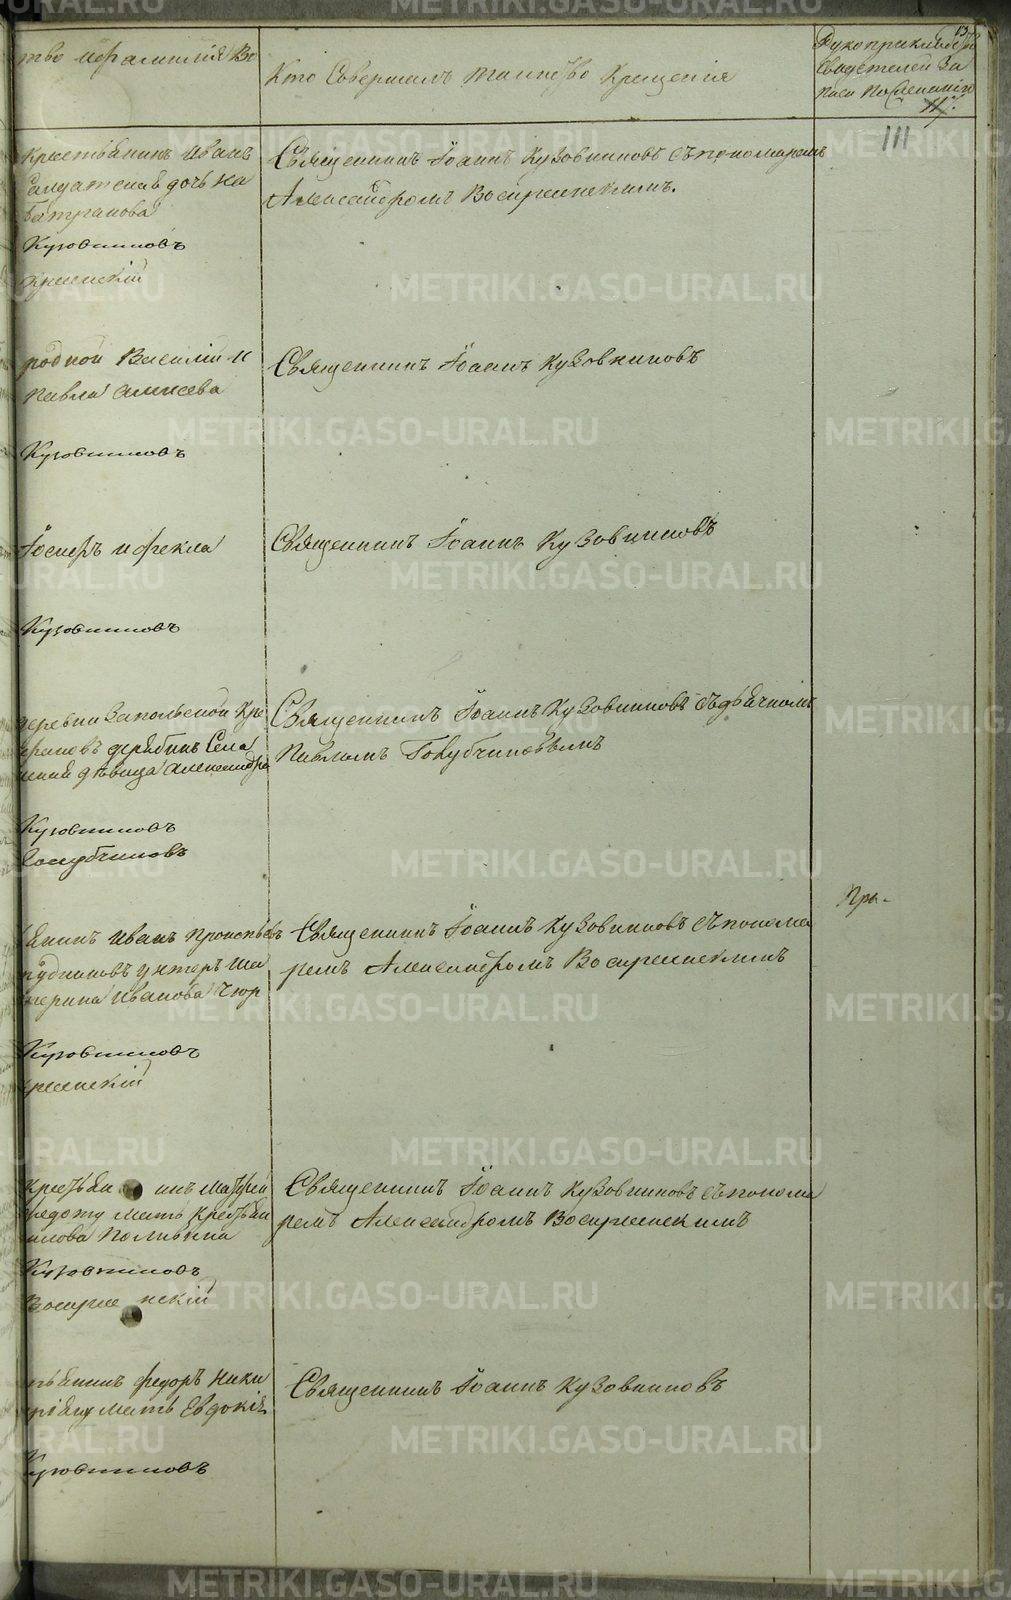 тво и фамилия Во
Кто Совершалъ таинство Крещенія
Рукоприкладство
Свидетелей За
писи По Желанію
111
крестьянинъ Иванъ
Салдатская дочь На
Батракова
Кузовниковъ
кресенскій
Священникъ Іоаннъ Кузовниковъ съ пономаремъ
Александромъ Воскресенскимъ.
родной Василій и
Павла Алексеева
Кузовниковъ
Священникъ Іоаннъ Кузовниковъ
Іосифъ и Фекла
Кузовниковъ
Священникъ Іоаннъ Кузовниковъ
деревни Запольской кре
Дерябинъ Села
девица Александра
Кузовниковъ
Голубчиковъ
Священникъ Іоаннъ Кузовниковъ съ дьячкомъ
Павломъ Голубчиковымъ
Пры-
янинъ Иванъ Прокопьевъ
рудниковъ унтеръ ша
терина Иванова Чюр
Кузовниковъ
кресенскій
Священникъ Іоаннъ Кузовниковъ съ понома
ремъ Александромъ Воскресенскимъ
крестьянинъ Матфей
Федоту мать Крестьян
Кузовниковъ
Воскресенскій
Священникъ Іоаннъ Кузовниковъ съ понома
ремъ Александромъ Воскресенскимъ
тьянинъ Федоръ Ники
мать Евдокія
Кузовниковъ
Священникъ Іоаннъ Кузовниковъ
METRIKI.GASO-URAL.RU